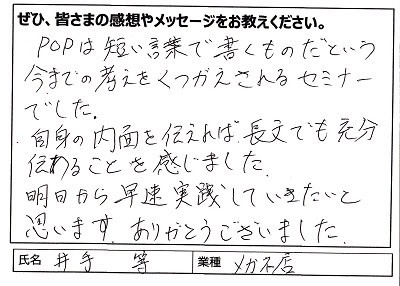 ぜひ、皆さまの感想やメッセージをお教えください。
POPは短い言葉で書くものだという
今までの考えをくつがえされるセミナー
でした。
自身の内面を伝えれば、長文でも充分
伝わることを感じました。
明日から早速実践していきたいと
思います。ありがとうございました。
氏名 井手 等 業種 メガネ店